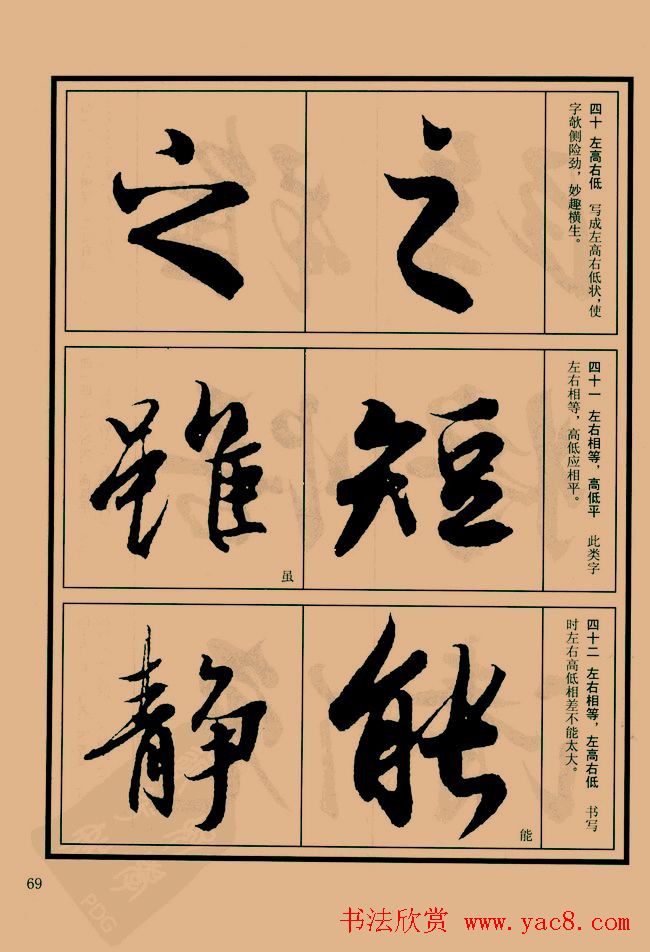 四十 左高右低 写成左高右低状，使
字欹侧险劲，妙趣横生。
之
之
四十一 左右相等，高低平 此类字
左右相等，高低应相平。
短
雖
虽
四十二 左右相等，左高右低 书写
时左右高低相差不能太大。
能
能
静
69
书法欣赏 www.yac8.com
PDG